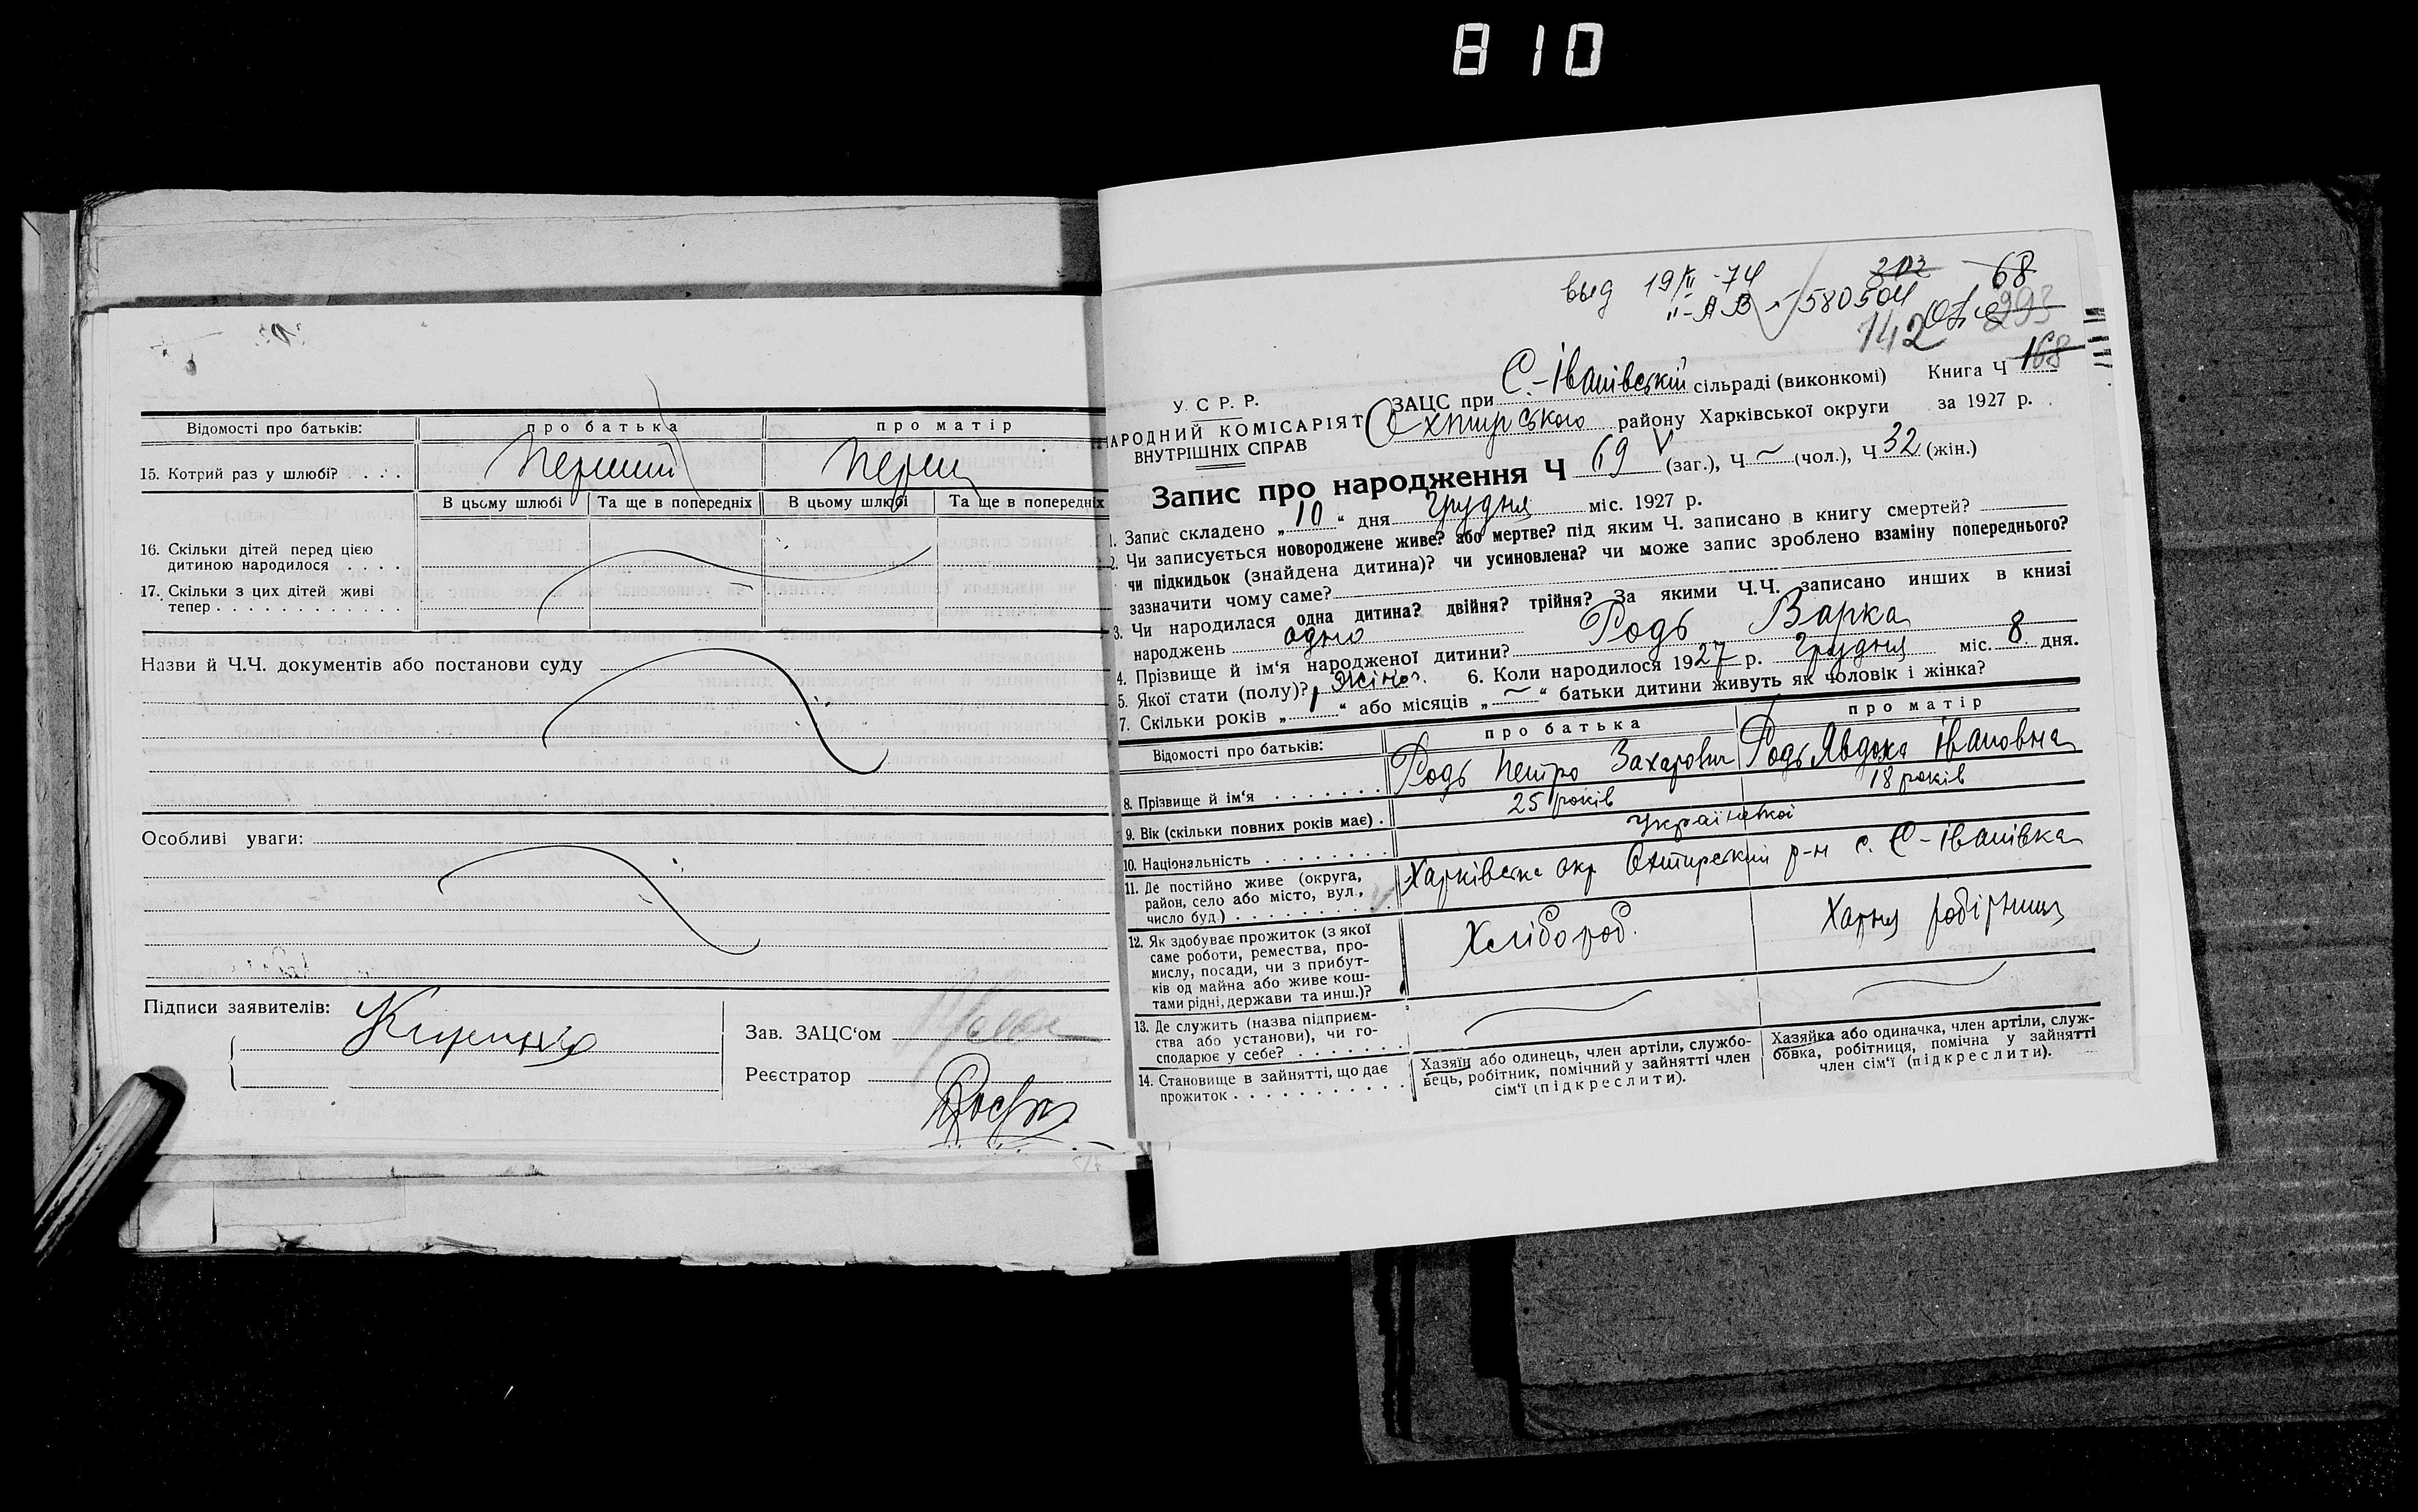 810
Відомості про батьків: про батька про матір
15. Котрий раз у шлюбі? . . . . Перший Перш
В цьому шлюбі Та ще в попередніх В цьому шлюбі Та ще в попередніх
16. Скільки дітей перед цією
дитиною народилося . . . .
17. Скільки з цих дітей живі
тепер . . . . . . . . . . . .
Назви й Ч.Ч. документів або постанови суду
Особливі уваги:
Підписи заявителів:
Зав. ЗАЦС‘ом
Реєстратор
выд 19/II-74 202 68
"-АВ 580504
142 293
У. С Р. Р.
НАРОДНИЙ КОМІСАРІЯТ
ВНУТРІШНІХ СПРАВ
ЗАЦС при С.-Іванівській сільраді (виконкомі) Книга Ч 168
Охтирського району Харківської округи за 1927 р.
Запис про народження Ч 69 (заг.), Ч ~ (чол.), Ч 32 (жін.)
1. Запис складено „10“ дня Грудня міс. 1927 р.
2. Чи записується новороджене живе? або мертве? під яким Ч. записано в книгу смертей?
чи підкидьок (знайдена дитина)? чи усиновлена? чи може запис зроблено взаміну попереднього?
зазначити чому саме?
3. Чи народилася одна дитина? двійня? трійня? За якими Ч.Ч. записано инших в книзі
народжень одно
4. Прізвище й ім‘я народженої дитини? Родь Варка
5. Якої статі (полу)? Жіно. 6. Коли народилося 1927 р. Грудня міс. 8 дня.
7. Скільки років „ “ або місяців „ ~ “ батьки дитини живуть як чоловік і жінка?
Відомості про батьків: про батька про матір
8. Прізвище й ім‘я . . . . . . . Родь Петро Захарович Родь Явдоха Івановна
9. Вік (скільки повних років має) . 25 років 18 років
10. Національність . . . . . . . . Української
11. Де постійно живе (округа,
район, село або місто, вул.,
число буд.) . . . . . . . . . Харківська окр Охтирський р-н с. С-Іванівка
12. Як здобуває прожиток (з якої
саме роботи, ремества, про-
мислу, посади, чи з прибут-
ків од майна або живе кош-
тами рідні, держави та инш.)? Хлібороб. Харня робітниця
13. Де служить (назва підприєм-
ства або установи), чи го-
сподарює у себе? . . . . . . .
14. Становище в зайнятті, що дає
прожиток . . . . . . . . . .
Хазяїн або одинець, член артіли, службо-
вець, робітник, помічний у зайнятті член
сім‘ї (підкреслити).
Хазяйка або одиначка, член артіли, служ-
бовка, робітниця, помічна у зайнятті
член сім‘ї (підкреслити).